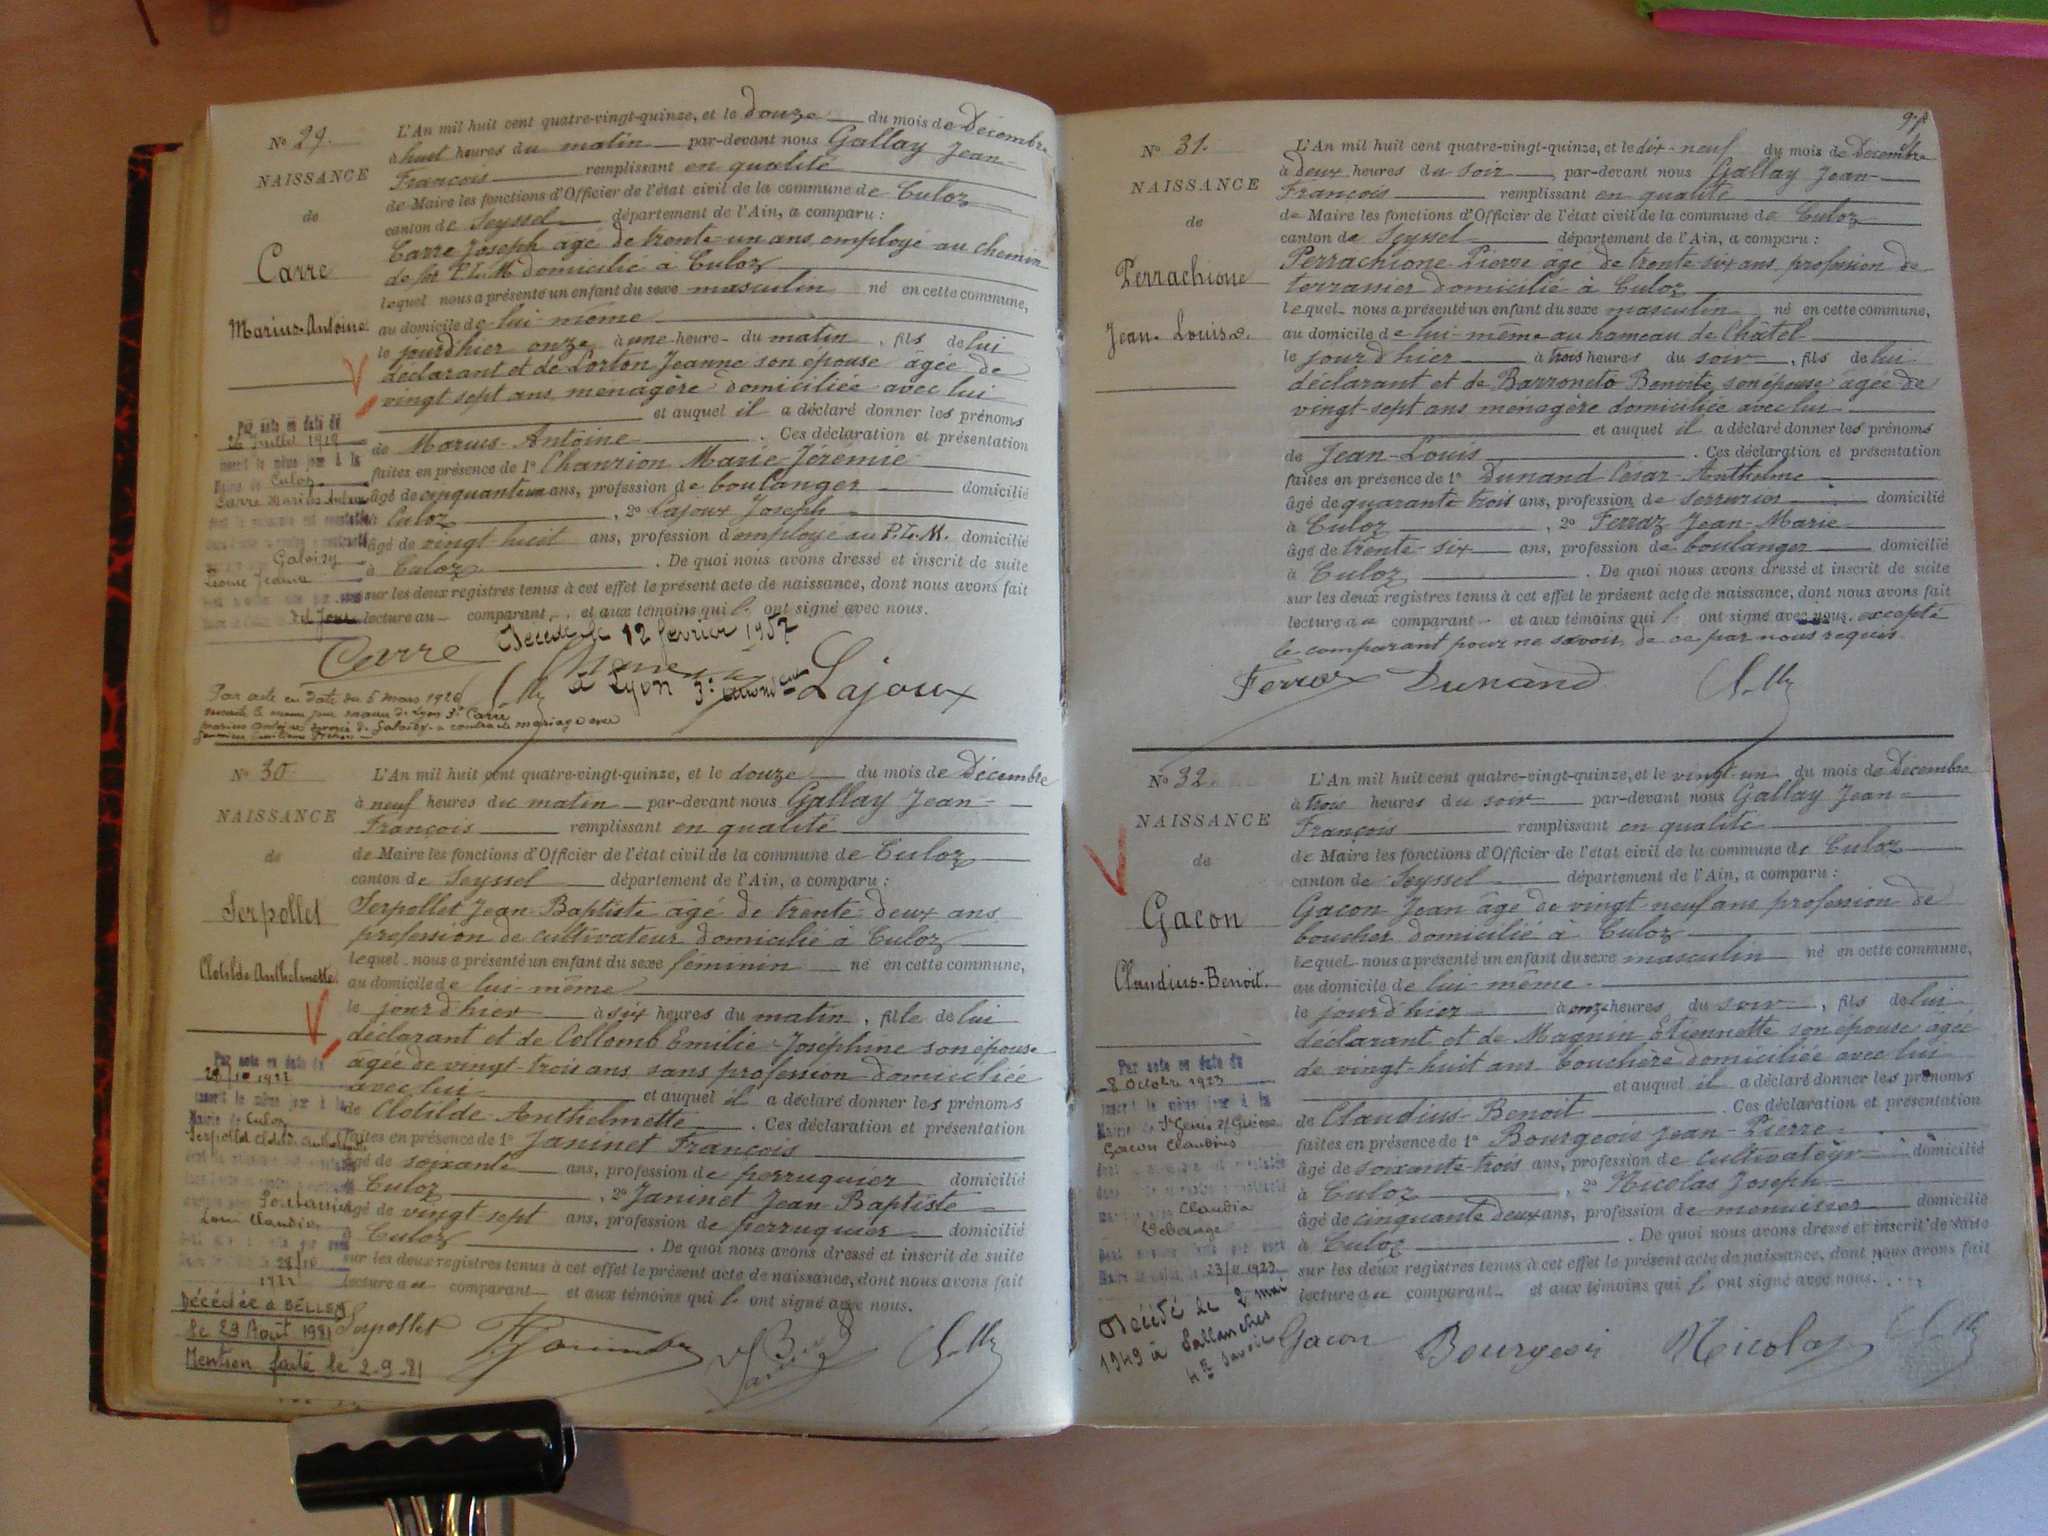 Nº 29.
NAISSANCE
de
Carre
Marius-Antoine
L'An mil huit cent quatre-vingt-quinze, et le douze du mois de Décembre
à huit heures du matin par-devant nous Gallay Jean-
François remplissant en qualité
de Maire les fonctions d'Officier de l'état civil de la commune de Culoz
canton de Seyssel département de l'Ain, a comparu :
Carre Joseph âgé de trente-un ans employé au chemin
de fer P.L.M. domicilié à Culoz
lequel nous a présenté un enfant du sexe masculin né en cette commune,
au domicile de lui-même
le jourd'hier onze à une heure du matin, fils de lui
déclarant et de Lorton Jeanne son épouse âgée de
vingt sept ans ménagère domiciliée avec lui
et auquel il a déclaré donner les prénoms
de Marius-Antoine. Ces déclaration et présentation
faites en présence de 1º Chanrion Marie-Jérémie
âgé de cinquante un ans, profession de boulanger domicilié
à Culoz, 2º Lajoux Joseph
âgé de vingt huit ans, profession d'employé au P.L.M. domicilié
à Culoz. De quoi nous avons dressé et inscrit de suite
sur les deux registres tenus à cet effet le présent acte de naissance, dont nous avons fait
lecture au comparant et aux témoins qui l' ont signé avec nous.
Par acte en date du
26 Juillet 1919
inscrit le même jour à la
Mairie de Culoz
Carre Marius Antoine
Galoizy
Léonie Jeanne
Décédé le 12 février 1957
à Lyon 3e
Carre
Lajoux
Par acte en date du 5 mars 1926
Nº 30
NAISSANCE
de
Serpollet
Clotilde Anthelmette
L'An mil huit cent quatre-vingt-quinze, et le douze du mois de Décembre
à neuf heures du matin par-devant nous Gallay Jean-
François remplissant en qualité
de Maire les fonctions d'Officier de l'état civil de la commune de Culoz
canton de Seyssel département de l'Ain, a comparu :
Serpollet Jean-Baptiste âgé de trente-deux ans
profession de cultivateur domicilié à Culoz
lequel nous a présenté un enfant du sexe féminin né en cette commune,
au domicile de lui-même
le jourd'hier à six heures du matin, fille de lui
déclarant et de Collomb Emilie-Joséphine son épouse
âgée de vingt-trois ans sans profession domiciliée
avec lui et auquel il a déclaré donner les prénoms
de Clotilde Anthelmette. Ces déclaration et présentation
faites en présence de 1º Janinet François
âgé de soixante ans, profession de perruquier domicilié
à Culoz, 2º Janinet Jean Baptiste
âgé de vingt sept ans, profession de perruquier domicilié
à Culoz. De quoi nous avons dressé et inscrit de suite
sur les deux registres tenus à cet effet le présent acte de naissance, dont nous avons fait
lecture au comparant et aux témoins qui l' ont signé avec nous.
Par acte en date du
inscrit le même jour à la
Mairie de Culoz
Louis Claudius
1922
Décédée à BELLEY
le 29 Août 1981
Mention faite le 2-9-81
Serpollet
97
Nº 31.
NAISSANCE
de
Perrachione
Jean-Louis
L'An mil huit cent quatre-vingt-quinze, et le dix-neuf du mois de Décembre
à deux heures du soir par-devant nous Gallay Jean-
François remplissant en qualité
de Maire les fonctions d'Officier de l'état civil de la commune de Culoz
canton de Seyssel département de l'Ain, a comparu :
Perrachione Pierre âgé de trente six ans profession de
terrassier domicilié à Culoz
lequel nous a présenté un enfant du sexe masculin né en cette commune,
au domicile de lui-même au hameau de Châtel
le jourd'hier à trois heures du soir, fils de lui
déclarant et de Barroneto Benoîte, son épouse âgée de
vingt-sept ans ménagère domiciliée avec lui
et auquel il a déclaré donner les prénoms
de Jean-Louis. Ces déclaration et présentation
faites en présence de 1º Dunand César-Anthelme
âgé de quarante trois ans, profession de serrurier domicilié
à Culoz, 2º Ferraz Jean-Marie
âgé de trente-six ans, profession de boulanger domicilié
à Culoz. De quoi nous avons dressé et inscrit de suite
sur les deux registres tenus à cet effet le présent acte de naissance, dont nous avons fait
lecture au comparant et aux témoins qui l' ont signé avec nous, excepté
le comparant pour ne savoir, de ce par nous requis.
Ferraz Dunand
Nº 32.
NAISSANCE
de
Gacon
Claudius-Benoit.
L'An mil huit cent quatre-vingt-quinze, et le vingt-un du mois de Décembre
à trois heures du soir par-devant nous Gallay Jean-
François remplissant en qualité
de Maire les fonctions d'Officier de l'état civil de la commune de Culoz
canton de Seyssel département de l'Ain, a comparu :
Gacon Jean âgé de vingt-neuf ans profession de
boucher domicilié à Culoz
lequel nous a présenté un enfant du sexe masculin né en cette commune,
au domicile de lui-même.
le jourd'hier à onze heures du soir, fils de lui
déclarant et de Magnin Etiennette son épouse âgée
de vingt-huit ans bouchère domiciliée avec lui
et auquel il a déclaré donner les prénoms
de Claudius-Benoit. Ces déclaration et présentation
faites en présence de 1º Bourgeois Jean-Pierre
âgé de soixante-trois ans, profession de cultivateur domicilié
à Culoz, 2º Nicolas Joseph
âgé de cinquante deux ans, profession de menuisier domicilié
à Culoz. De quoi nous avons dressé et inscrit de suite
sur les deux registres tenus à cet effet le présent acte de naissance, dont nous avons fait
lecture au comparant et aux témoins qui l' ont signé avec nous.
Par acte en date du
8 Octobre 1923
inscrit le même jour à la
Mairie de St Genis s/ Guiers
Gacon Claudius
Claudia
23/11 1923
Décédé le 2 mai
1949 à Sallanches
Hte Savoie
Gacon Bourgeois Nicolas